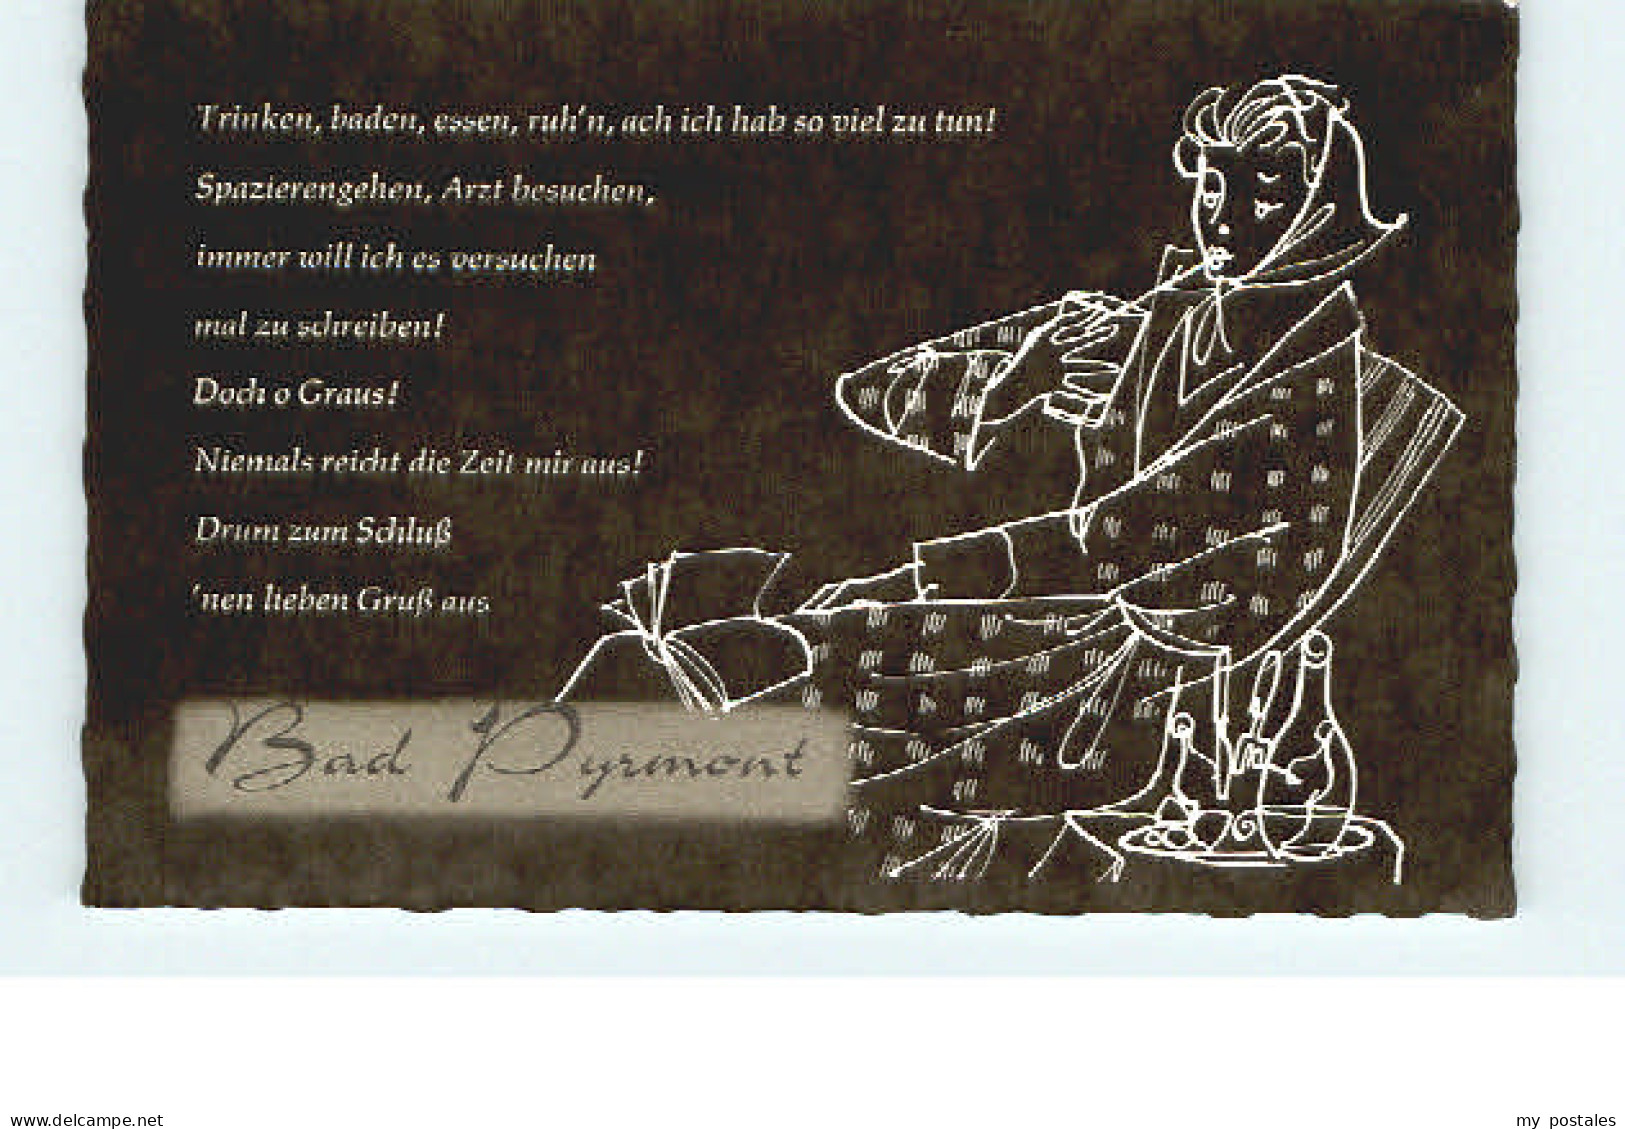 Trinken, baden, essen, ruh'n, ach ich hab so viel zu tun!
Spazierengehen, Arzt besuchen,
immer will ich es versuchen
mal zu schreiben!
Doch o Graus!
Niemals reicht die Zeit mir aus!
Drum zum Schluß
'nen lieben Gruß aus
Bad Pyrmont
delcampe.net
my_postales